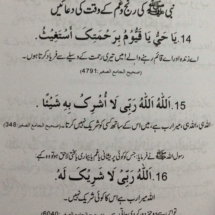 نبی ﷺ کی رنج و غم کے وقت کی دعائیں
14. يَا حَيُّ يَا قَيُّومُ بِرَحْمَتِكَ أَسْتَغِيْثُ
اے زندہ اور اے قائم رہنے والے! میں تیری رحمت کے وسیلے سے فریاد کرتا ہوں۔
(صحیح الجامع الصغیر:4791)
15. اَللهُ اَللهُ رَبِّى لَا أُشْرِكُ بِهِ شَيْئًا.
اللہ، اللہ ہی میرا رب ہے، میں اس کے ساتھ کسی کو شریک نہیں کرتا۔ (صحیح الجامع الصغیر:348)
رسول اللہ ﷺ نے فرمایا: جس کو کوئی پریشانی یا غم یا بیماری یا سختی لاحق ہو
16. اَللهُ رَبِّى لَا شَرِيْكَ لَهُ.
اللہ میرا رب ہے اس کا کوئی شریک نہیں۔